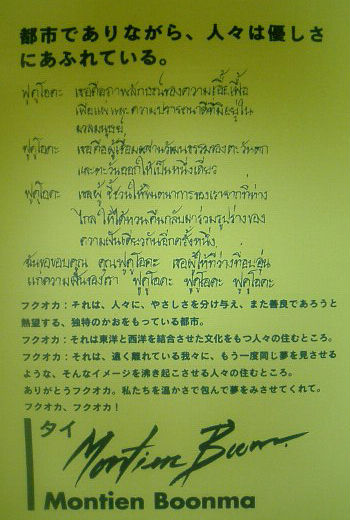 都市でありながら、人々は優しさ
にあふれている。
ฟุคุโอคะ เธอคือภาพลักษณ์ของความเอื้อเฟื้อ
เผื่อแผ่และความปรารถนาดีที่มีอยู่ใน
มวลมนุษย์
ฟุคุโอคะ เธอคือผู้เชื่อมผสานวัฒนธรรมของตะวันตก
และตะวันออกให้เป็นหนึ่งเดียว
ฟุคุโอคะ เธอผู้ชี้ชวนให้จินตนาการของเราจากที่ห่าง
ไกล ให้ได้หวนคืนกลับมารวมรูปร่างของ
ความฝันเดียวกันอีกครั้งหนึ่ง
ฉันขอขอบคุณ คุณฟุคุโอคะ เธอผู้ให้ที่ว่างที่อบอุ่น
แก่ความฝันของเรา ฟุคุโอคะ ฟุคุโอคะ ฟุคุโอคะ
フクオカ：それは、人々に、やさしさを分け与え、また善良であろうと
熱望する、独特のかおをもっている都市。
フクオカ：それは東洋と西洋を結合させた文化をもつ人々の住むところ。
フクオカ：それは、遠く離れている我々に、もう一度同じ夢を見させる
ような、そんなイメージを沸き起こさせる人々の住むところ。
ありがとうフクオカ。私たちを温かさで包んで夢をみさせてくれて。
フクオカ、フクオカ！
タイ
Montien Boonma
Montien Boonma